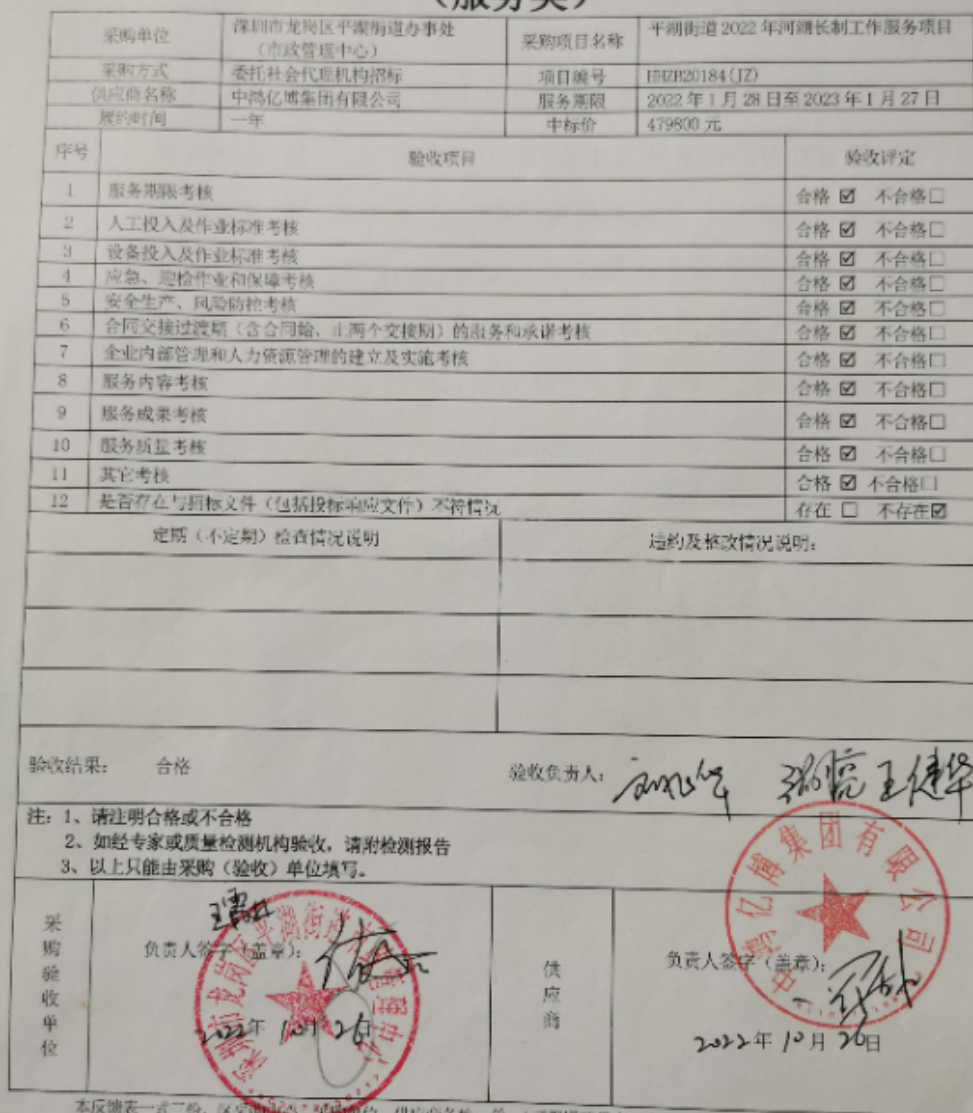 （服务类）
采购单位 深圳市龙岗区平湖街道办事处
（市政管理中心） 采购项目名称 平湖街道2022年河湖长制工作服务项目
采购方式 委托社会代理机构招标 项目编号 HHZH20184(JZ)
供应商名称 中鸿亿博集团有限公司 服务期限 2022年1月28日至2023年1月27日
履约时间 一年 中标价 479800元
序号 验收项目 验收评定
1 服务期限考核 合格☑ 不合格☐
2 人工投入及作业标准考核 合格☑ 不合格☐
3 设备投入及作业标准考核 合格☑ 不合格☐
4 应急、迎检作业和保障考核 合格☑ 不合格☐
5 安全生产、风险防控考核 合格☑ 不合格☐
6 合同交接过渡期（含合同始、止两个交接期）的服务和承诺考核 合格☑ 不合格☐
7 企业内部管理和人力资源管理的建立及实施考核 合格☑ 不合格☐
8 服务内容考核 合格☑ 不合格☐
9 服务成果考核 合格☑ 不合格☐
10 服务质量考核 合格☑ 不合格☐
11 其它考核 合格☑ 不合格☐
12 是否存在与招标文件（包括投标响应文件）不符情况 存在☐ 不存在☑
定期（不定期）检查情况说明 违约及整改情况说明：
验收结果： 合格 验收负责人： 王健华
注：1、请注明合格或不合格
2、如经专家或质量检测机构验收，请附检测报告
3、以上只能由采购（验收）单位填写。
采购验收单位 负责人签字（盖章）：
2022年10月26日
供应商 负责人签字（盖章）：
2022年10月26日
中鸿亿博集团有限公司
本反馈表一式二份